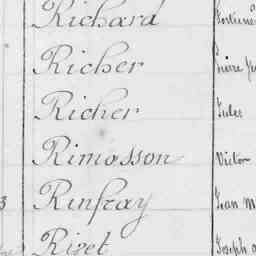 Richard
Richer
Richer Jules
Rimosson Victor
3 Rinfray Jean M
Rivet Joseph